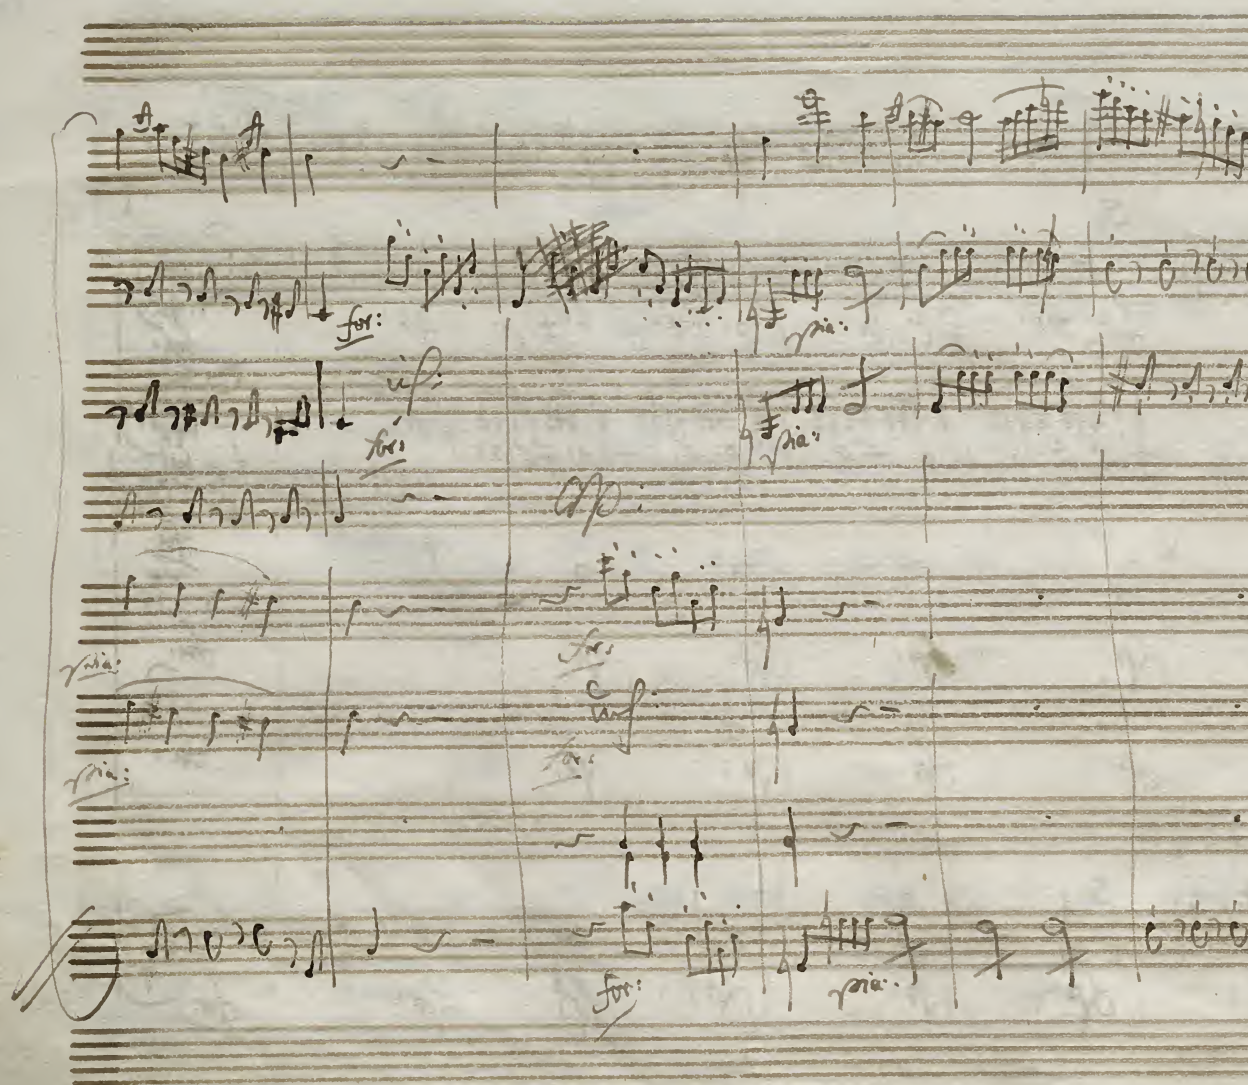 for:
pia:
for:
pia:
for:
pia:
for:
pia:
for:
pia: